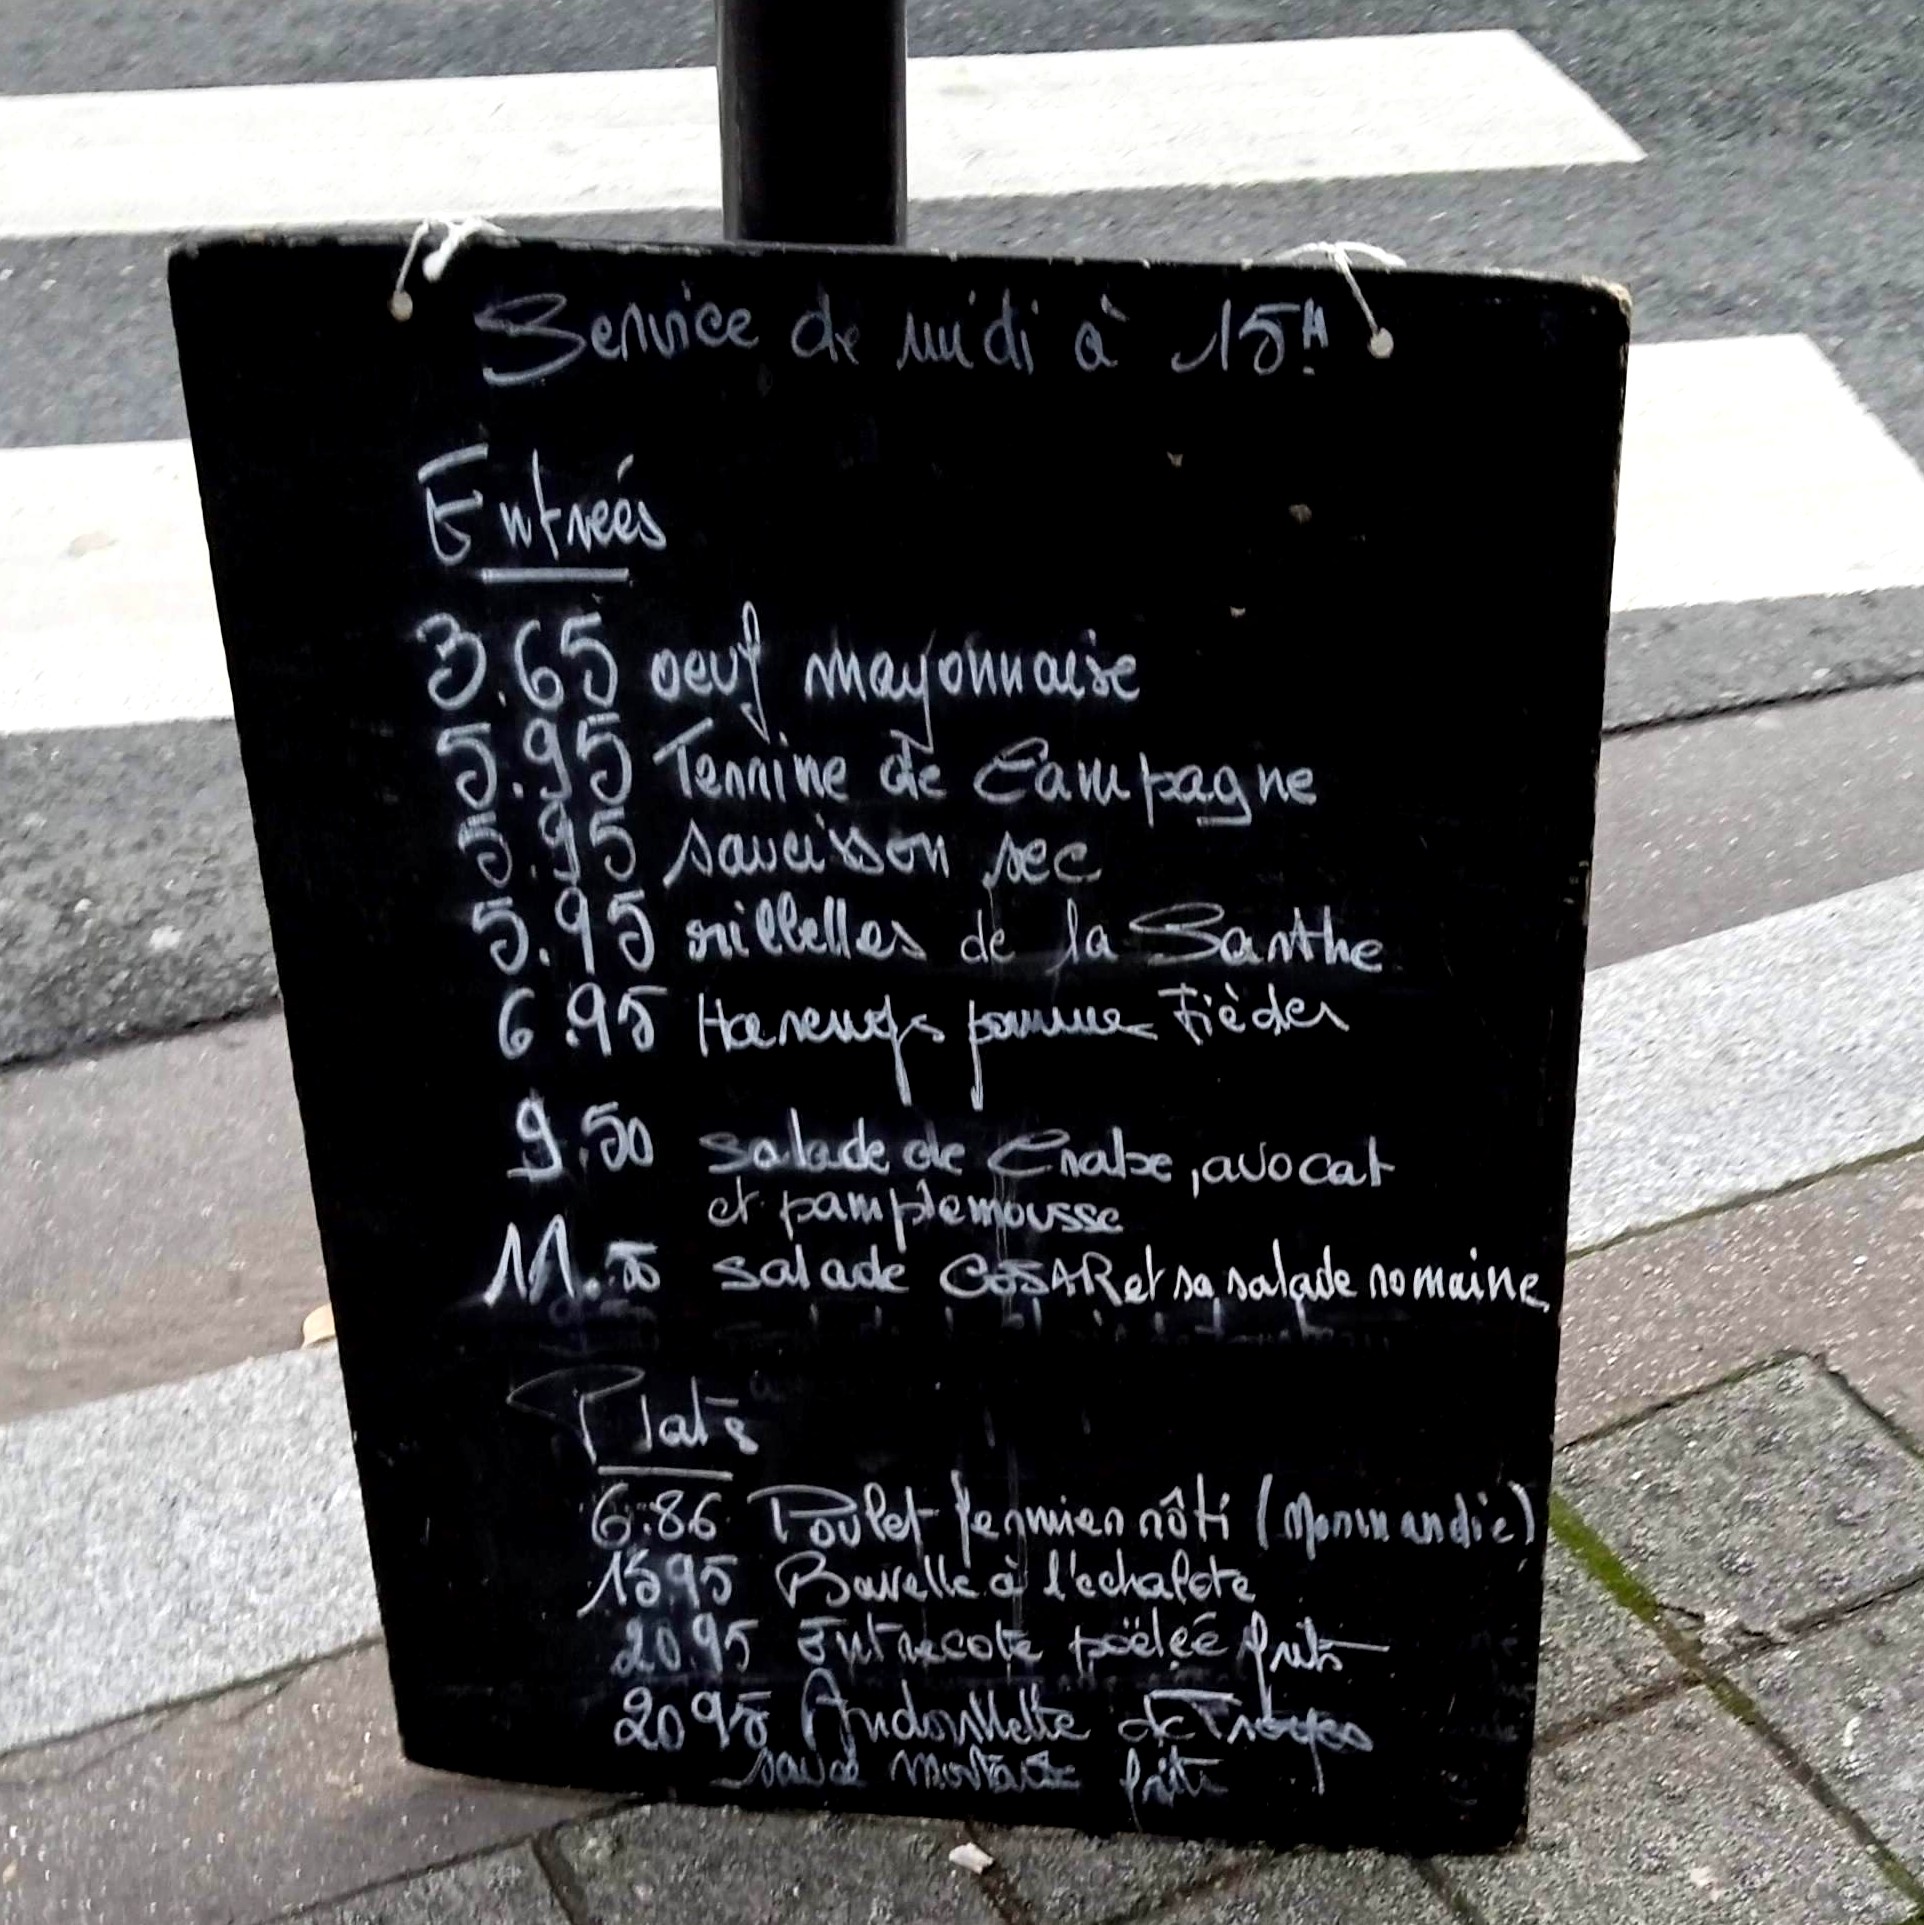 Service de midi à 15H
Entrées
3.65 oeuf mayonnaise
5.95 Terrine de Campagne
5.95 saucisson sec
5.95 rillettes de la Sarthe
6.95 Harengs pomme Tièdes
9.50 salade de Crabe, avocat
et pamplemousse
11.50 salade CéSAR et sa salade romaine
Plats
6.86 Poulet fermier rôti (Normandie)
15.95 Bavette à l'echalote
20.95 Entrecote pöelée frites
20.95 Andouillette de Troyes
sauce moutarde frite